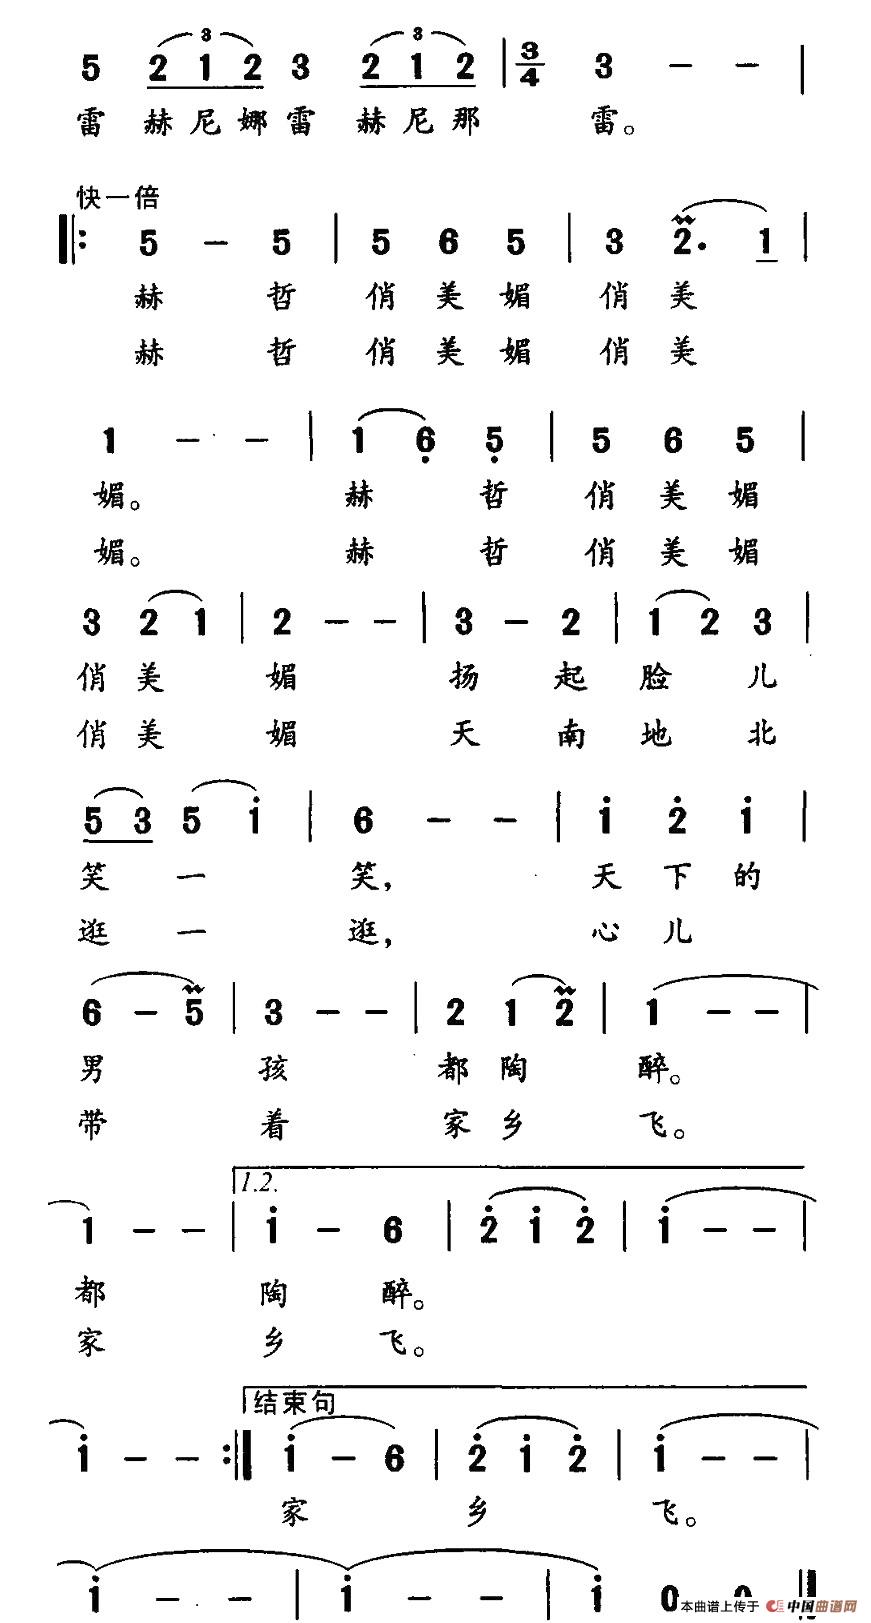 5 2 1 2 3 2 1 2 | 3/4 3 - - |
3 3
雷 赫 尼 娜 雷 赫 尼 那 雷。
快一倍
5 - 5 | 5 6 5 | 3 2. 1 |
赫 哲 俏 美 媚 俏 美
赫 哲 俏 美 媚 俏 美
1 - - | 1 6 5 | 5 6 5 |
媚。 赫 哲 俏 美 媚
媚。 赫 哲 俏 美 媚
3 2 1 | 2 - - | 3 - 2 | 1 2 3 |
俏 美 媚 扬 起 脸 儿
俏 美 媚 天 南 地 北
5 3 5 i | 6 - - | i 2 i |
笑 一 笑， 天 下 的
逛 一 逛， 心 儿
6 - 5 | 3 - - | 2 1 2 | 1 - - |
男 孩 都 陶 醉。
带 着 家 乡 飞。
1.2.
1 - - | i - 6 | 2 i 2 | i - - |
都 陶 醉。
家 乡 飞。
结束句
i - - :| i - 6 | 2 i 2 | i - - |
家 乡 飞。
i - - | i - - | i 0 0 ||
本曲谱上传于 中国曲谱网